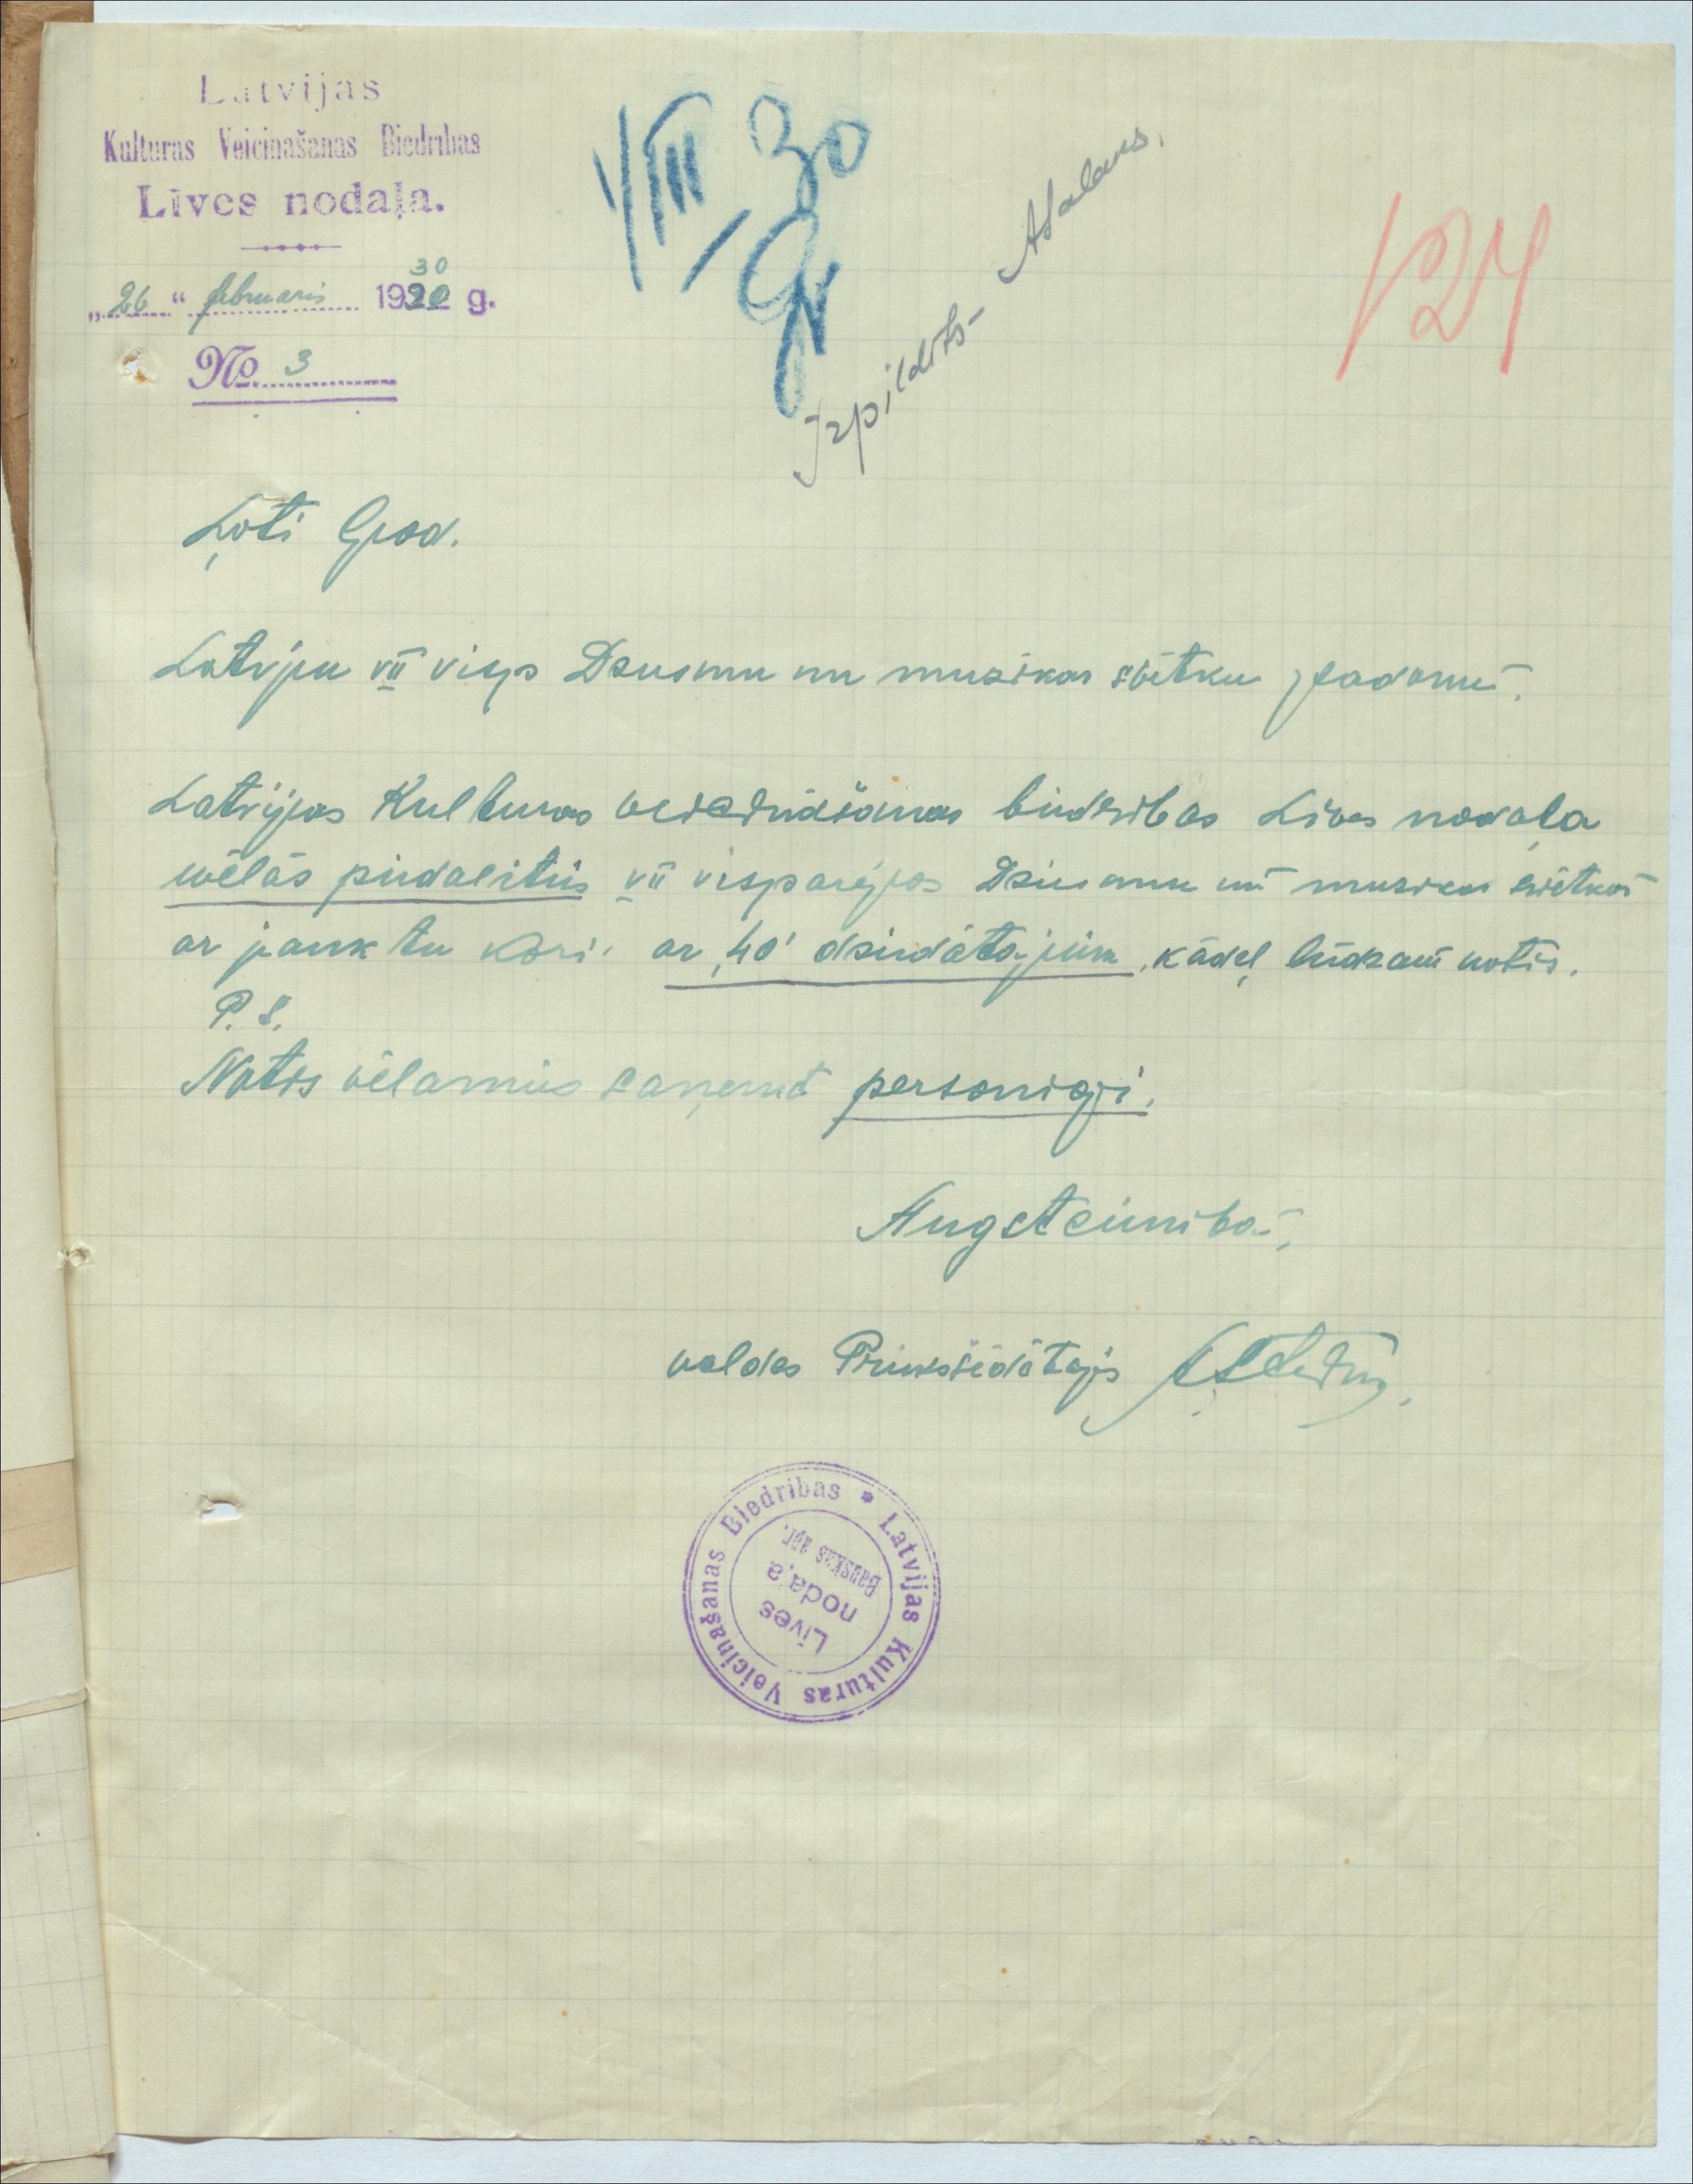 Latvijas
Kulturas Veicinašanas Biedrības
Līves nodaļa.
„26“ februaris 1930 g.
No. 3
1/III 30
Gr
Izpildīts
124
Ļoti God.
Latvju VII visp Dziesmu un muzikas svētku padomei.
Latvijas Kulturas veicināšanas biedrības Līves nodaļa
vēlās piedalīties VII vispārējos Dziesmu un muzikas svētkos
ar jauktu kori ar 40 dziedātājiem, kādeļ lūdzam notis.
P. S.
Notis vēlamies saņemt personīgi.
Augstcienībā,
valdes Priekšsēdētājs
Latvijas Kulturas Veicinašanas Biedribas
Līves
nodaļa
Bauskas apr.